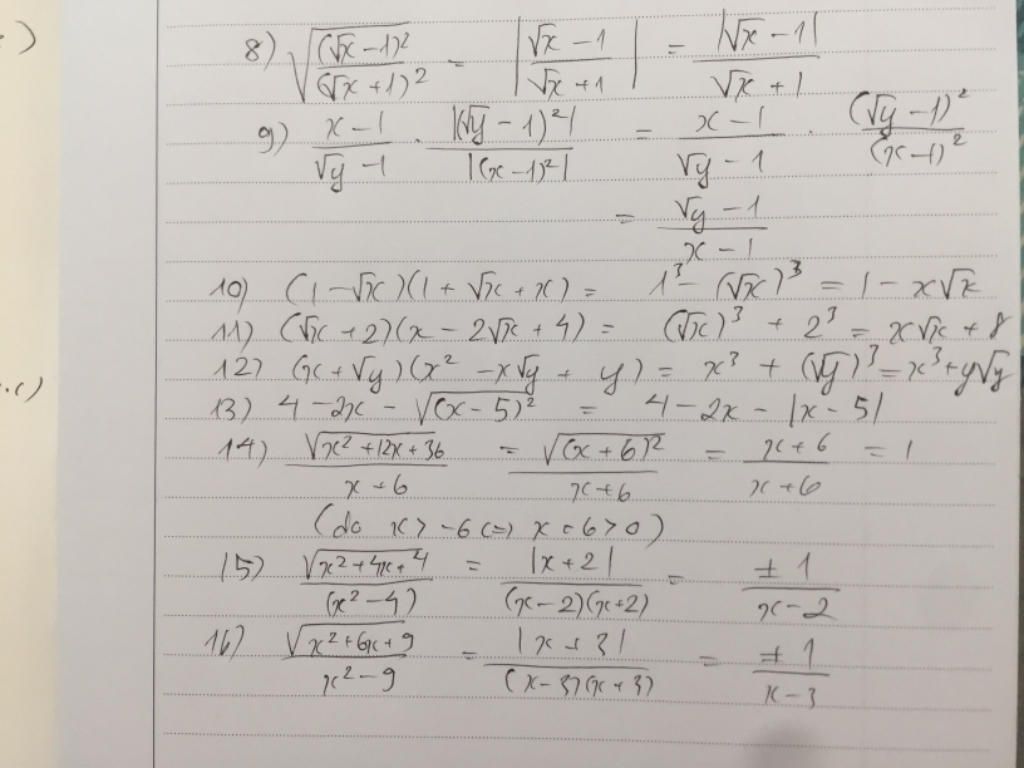 8) √((√x - 1)² / (√x + 1)²) = |(√x - 1) / (√x + 1)| = |√x - 1| / (√x + 1)
9) (x - 1) / (√y - 1) · |(√y - 1)²| / |(x - 1)²| = (x - 1) / (√y - 1) · (√y - 1)² / (x - 1)²
= (√y - 1) / (x - 1)
10) (1 - √x)(1 + √x + x) = 1³ - (√x)³ = 1 - x√x
11) (√x + 2)(x - 2√x + 4) = (√x)³ + 2³ = x√x + 8
12) (x + √y)(x² - x√y + y) = x³ + (√y)³ = x³ + y√y
13) 4 - 2x - √((x - 5)²) = 4 - 2x - |x - 5|
14) √(x² + 12x + 36) / (x + 6) = √((x + 6)²) / (x + 6) = (x + 6) / (x + 6) = 1
(do x > -6 <=> x + 6 > 0)
15) √(x² + 4x + 4) / (x² - 4) = |x + 2| / ((x - 2)(x + 2)) = ± 1 / (x - 2)
16) √(x² + 6x + 9) / (x² - 9) = |x + 3| / ((x - 3)(x + 3)) = ± 1 / (x - 3)